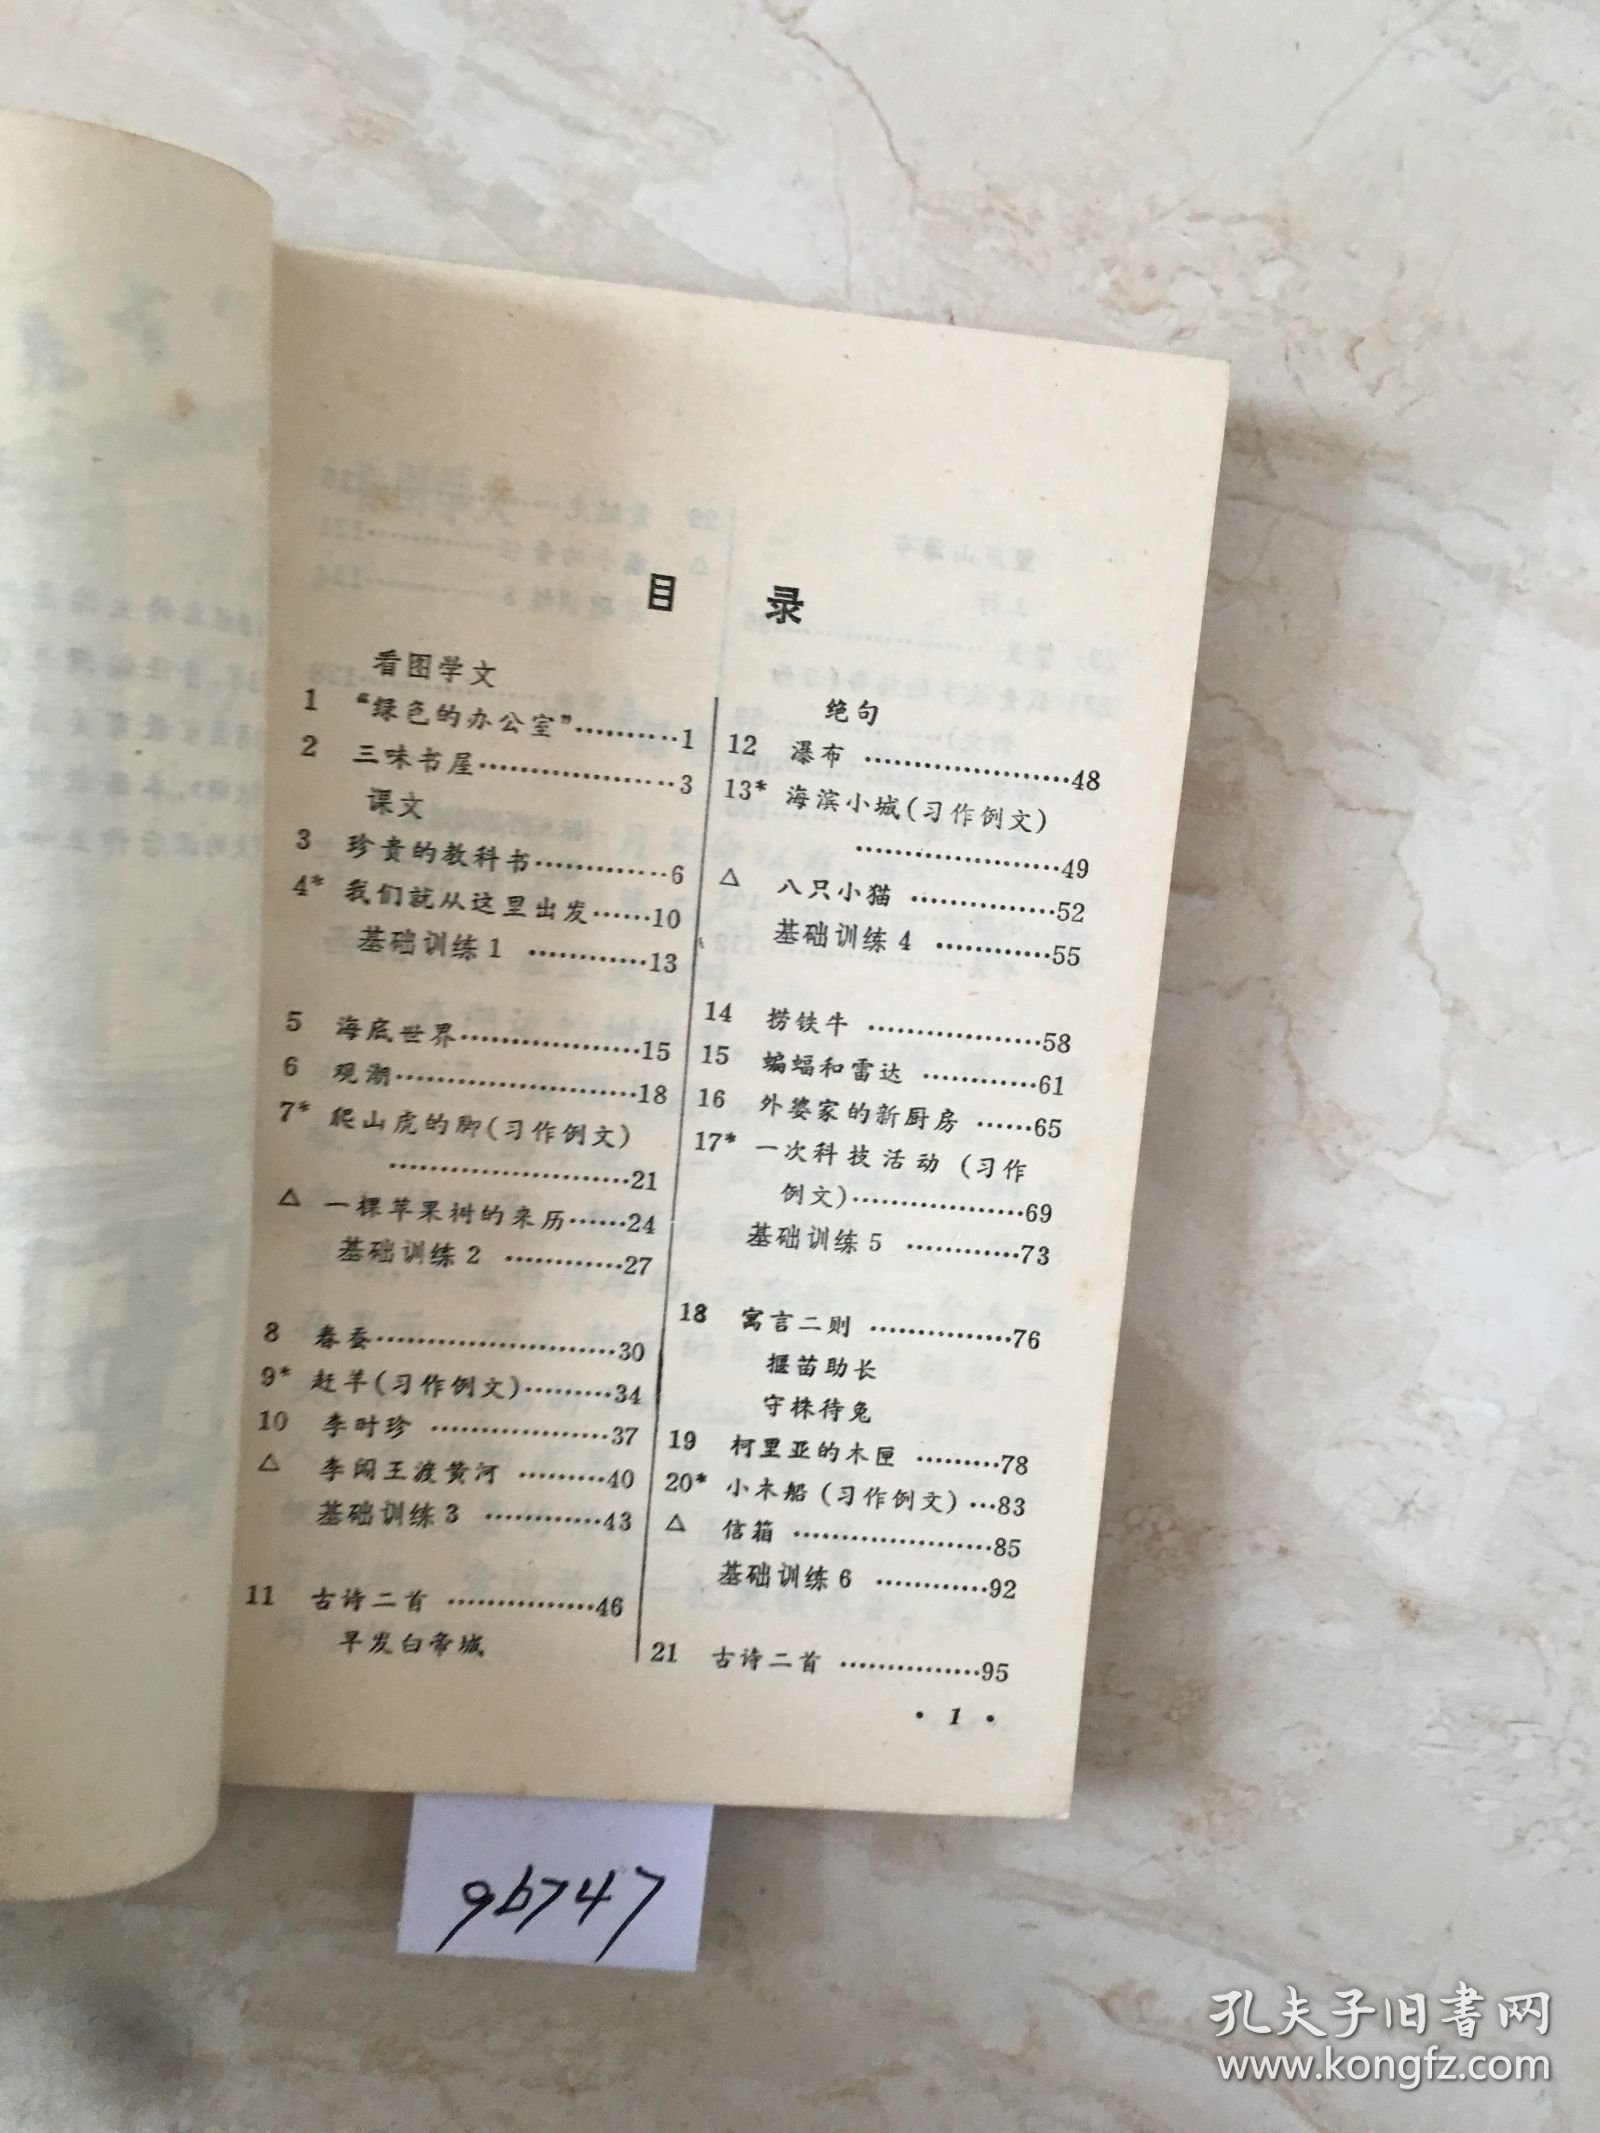 目 录
看图学文
1 “绿色的办公室”…………1
2 三味书屋…………………3
课文
3 珍贵的教科书……………6
4* 我们就从这里出发……10
基础训练1 …………13
5 海底世界…………………15
6 观潮………………………18
7* 爬山虎的脚(习作例文)
………………………21
△ 一棵苹果树的来历……24
基础训练2 …………27
8 春蚕………………………30
9* 赶羊(习作例文)………34
10 李时珍 …………………37
△ 李闯王渡黄河 ………40
基础训练3 …………43
11 古诗二首 ……………46
早发白帝城
绝句
12 瀑布 …………………48
13* 海滨小城(习作例文)
…………………49
△ 八只小猫 ……………52
基础训练4 …………55
14 捞铁牛 ………………58
15 蝙蝠和雷达 …………61
16 外婆家的新厨房 ……65
17* 一次科技活动 (习作
例文)………………69
基础训练5 …………73
18 寓言二则 ……………76
揠苗助长
守株待兔
19 柯里亚的木匣 ………78
20* 小木船 (习作例文) …83
△ 信箱 …………………85
基础训练6 …………92
21 古诗二首 ……………95
• 1 •
9b747
孔夫子旧书网
www.kongfz.com